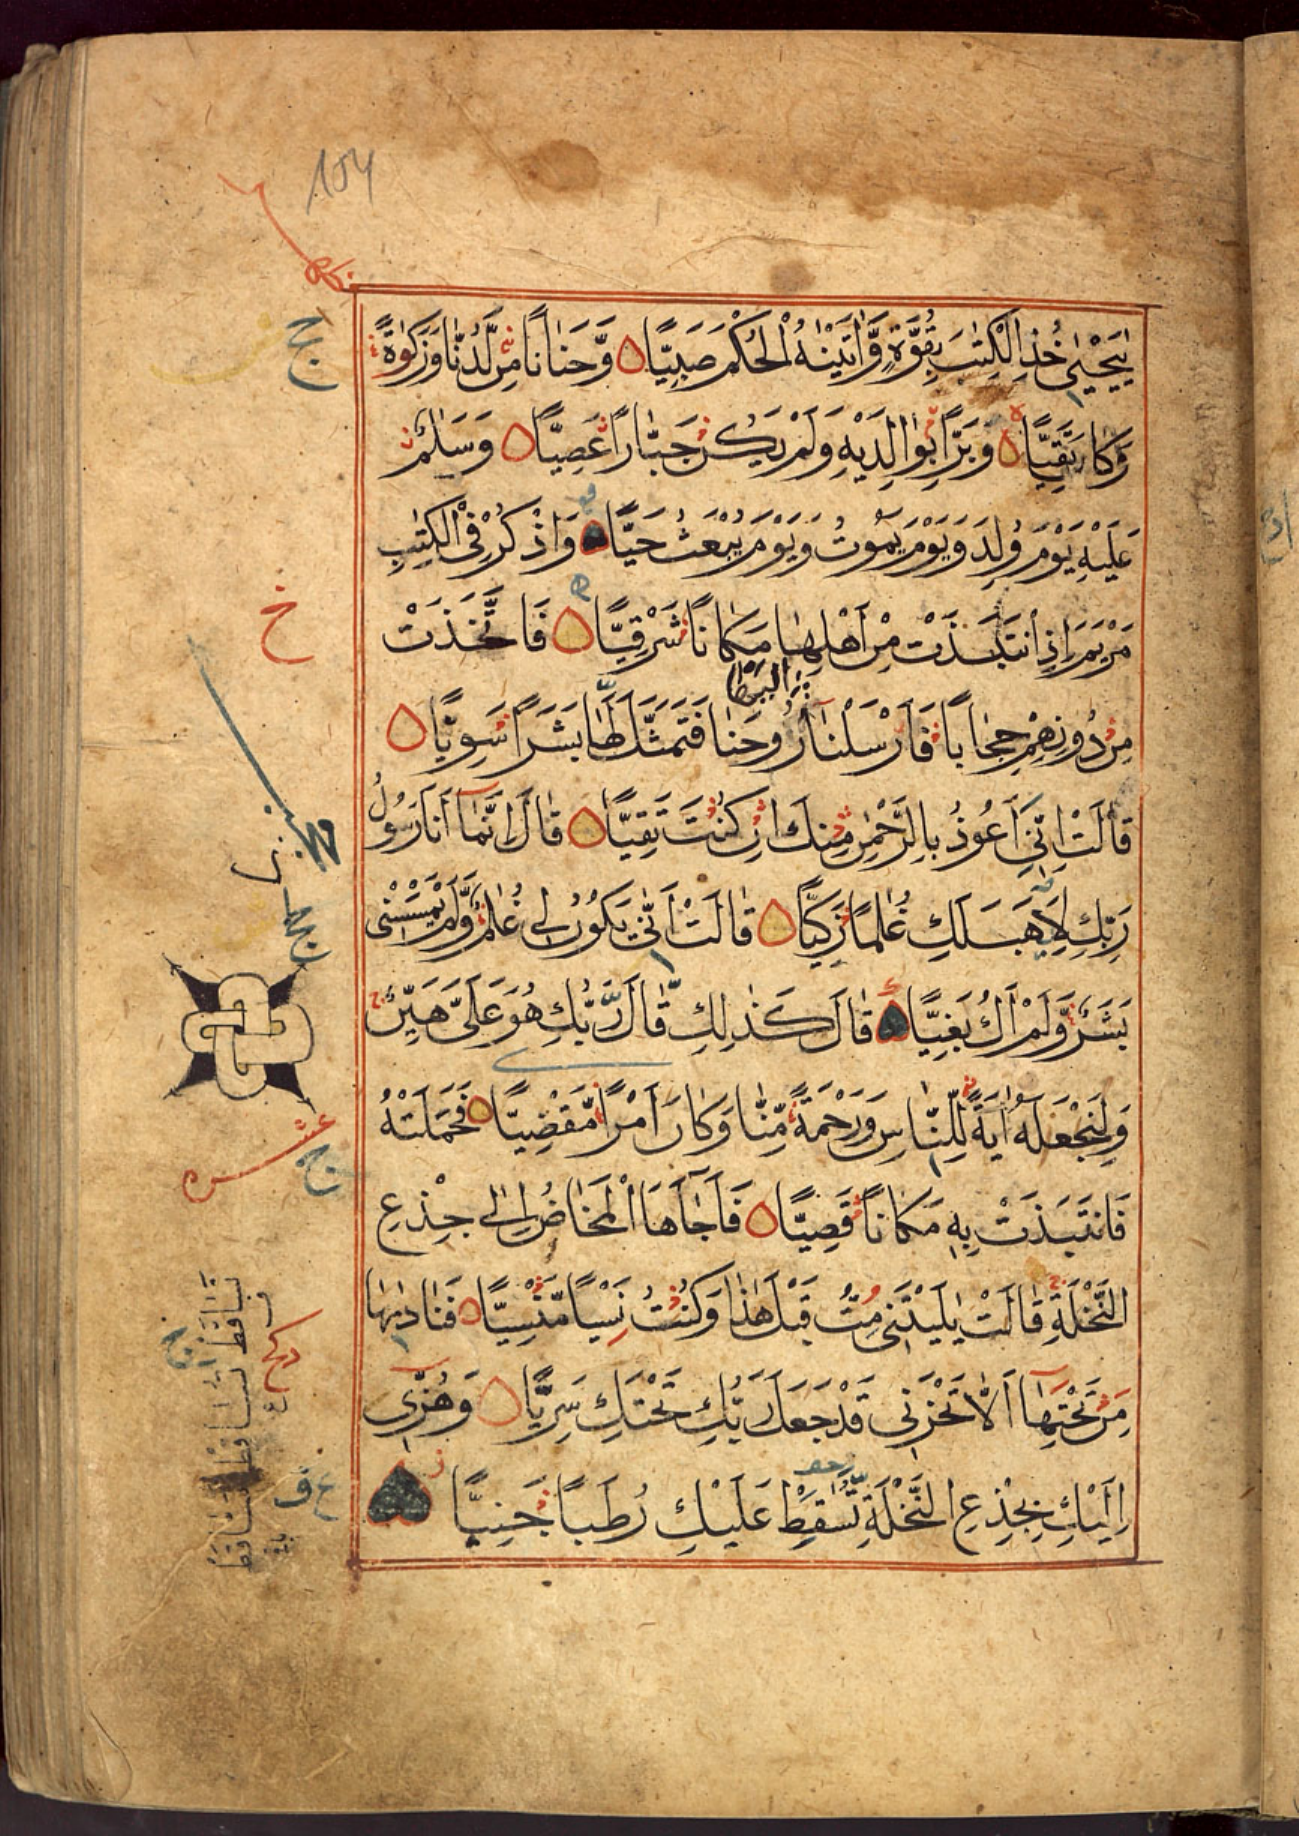 154
يٰيَحْيٰى خُذِ الْكِتٰبَ بِقُوَّةٍ وَّاٰتَيْنٰهُ الْحُكْمَ صَبِيًّا وَّحَنَانًا مِّنْ لَّدُنَّا وَزَكٰوةً
وَكَانَ تَقِيًّا وَبَرًّا بِوَالِدَيْهِ وَلَمْ يَكُنْ جَبَّارًا عَصِيًّا وَسَلٰمٌ
عَلَيْهِ يَوْمَ وُلِدَ وَيَوْمَ يَمُوْتُ وَيَوْمَ يُبْعَثُ حَيًّا وَاذْكُرْ فِى الْكِتٰبِ
مَرْيَمَ اِذِ انْتَبَذَتْ مِنْ اَهْلِهَا مَكَانًا شَرْقِيًّا فَاتَّخَذَتْ
مِنْ دُوْنِهِمْ حِجَابًا فَاَرْسَلْنَا اِلَيْهَا رُوْحَنَا فَتَمَثَّلَ لَهَا بَشَرًا سَوِيًّا
قَالَتْ اِنِّىْ اَعُوْذُ بِالرَّحْمٰنِ مِنْكَ اِنْ كُنْتَ تَقِيًّا قَالَ اِنَّمَا اَنَا رَسُوْلُ
رَبِّكِ لِاَهَبَ لَكِ غُلٰمًا زَكِيًّا قَالَتْ اَنّٰى يَكُوْنُ لِىْ غُلٰمٌ وَّلَمْ يَمْسَسْنِىْ
بَشَرٌ وَّلَمْ اَكُ بَغِيًّا قَالَ كَذٰلِكِ قَالَ رَبُّكِ هُوَ عَلَىَّ هَيِّنٌ
وَلِنَجْعَلَهٗ اٰيَةً لِّلنَّاسِ وَرَحْمَةً مِّنَّا وَكَانَ اَمْرًا مَّقْضِيًّا فَحَمَلَتْهُ
فَانْتَبَذَتْ بِهٖ مَكَانًا قَصِيًّا فَاَجَاۤءَهَا الْمَخَاضُ اِلٰى جِذْعِ
النَّخْلَةِ قَالَتْ يٰلَيْتَنِىْ مِتُّ قَبْلَ هٰذَا وَكُنْتُ نِسْيًا مَّنْسِيًّا فَنَادٰىهَا
مِنْ تَحْتِهَا اَلَّا تَحْزَنِىْ قَدْ جَعَلَ رَبُّكِ تَحْتَكِ سَرِيًّا وَهُزِّىْ
اِلَيْكِ بِجِذْعِ النَّخْلَةِ تُسٰقِطْ عَلَيْكِ رُطَبًا جَنِيًّا
خ
عشره